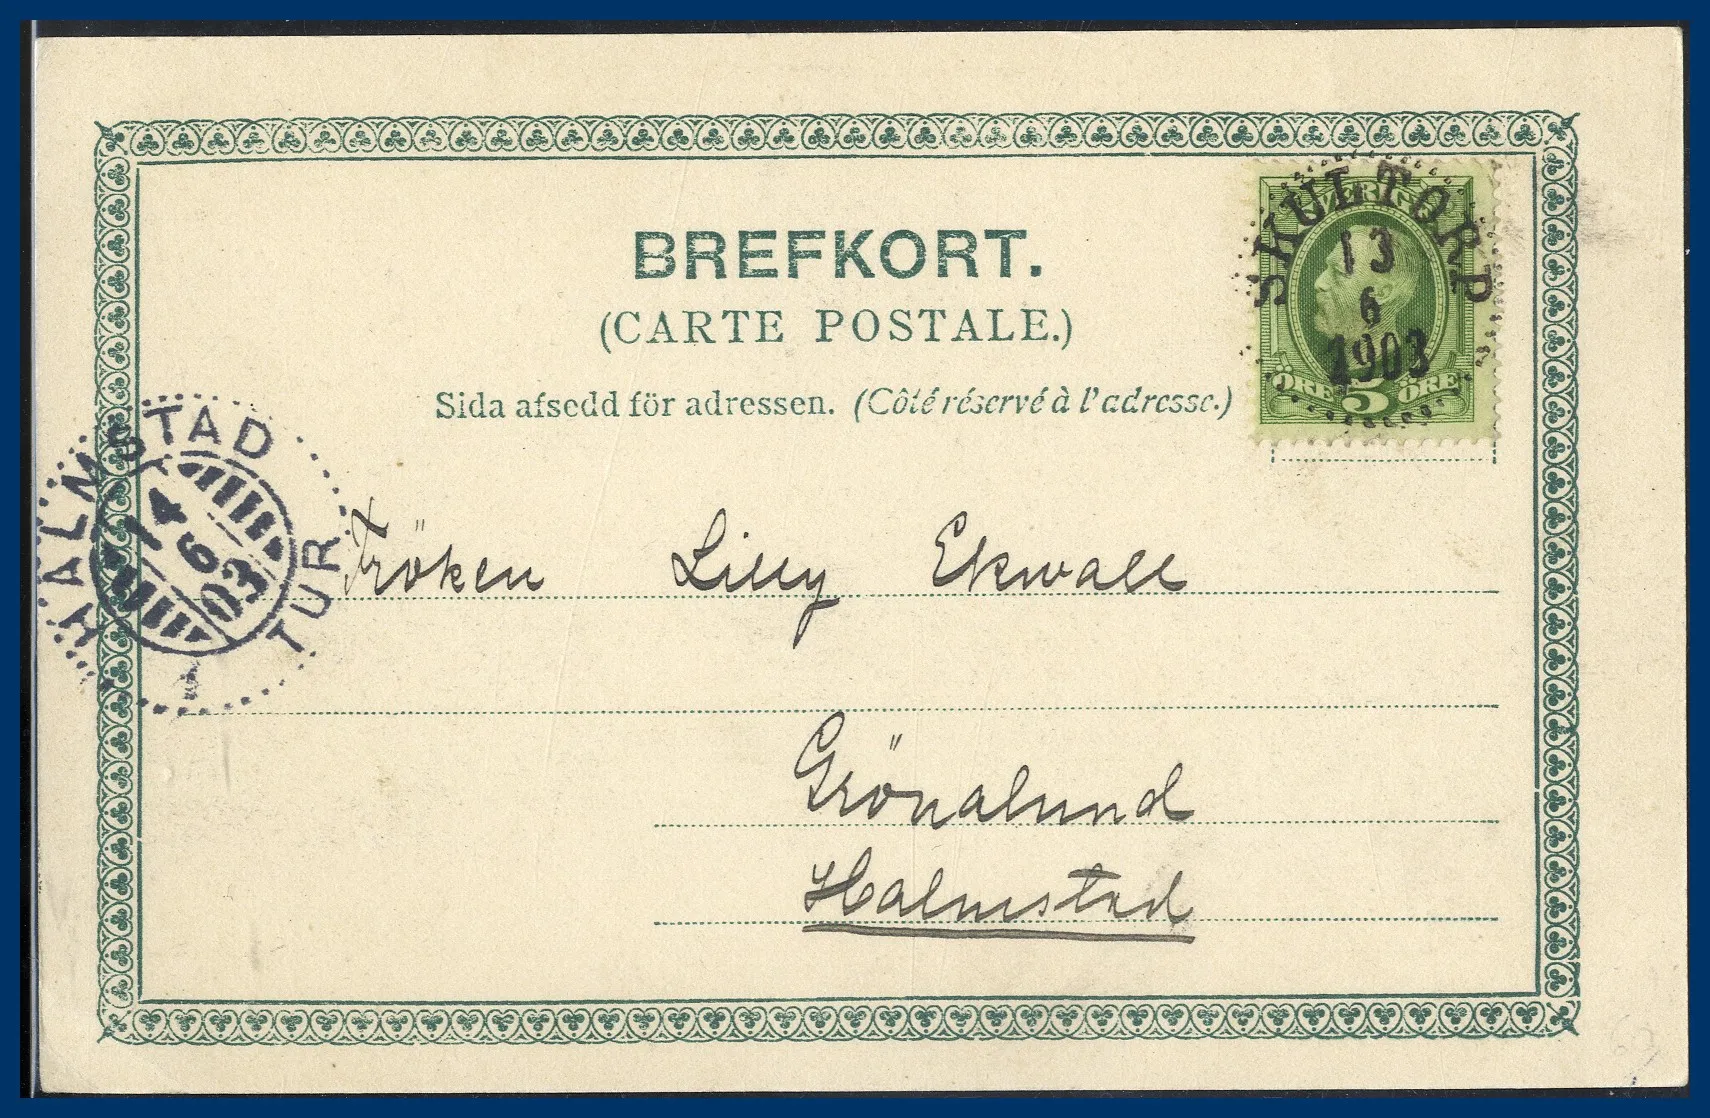 BREFKORT.
(CARTE POSTALE.)
Sida afsedd för adressen. (Côté réservé à l'adresse.)
SVERIGE
5
ÖRE 5 ÖRE
SKULTORP
13
6
1903
HALMSTAD
14
6
03
1 TUR
Fröken Lilly Ekwall
Grönalund
Halmstad